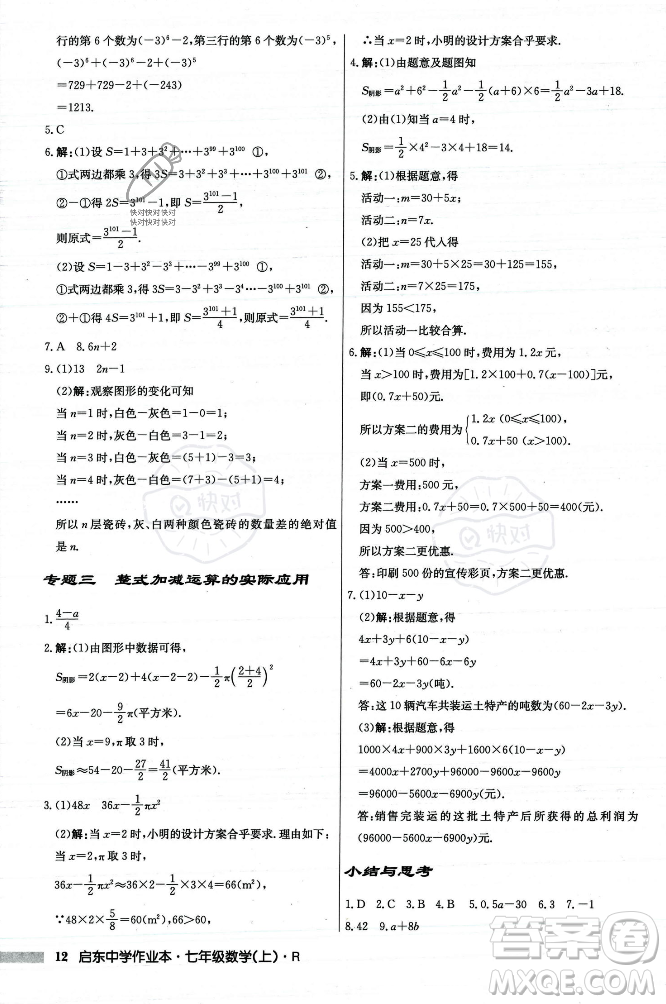 行的第 6 个数为(-3)⁶-2，第三行的第 6 个数为(-3)⁵，
(-3)⁶+(-3)⁶-2+(-3)⁵
=729+729-2+(-243)
=1213.
5. C
6. 解：(1)设 S=1+3+3²+…+3⁹⁹+3¹⁰⁰ ①，
①式两边都乘 3，得 3S=3+3²+3³+…+3¹⁰⁰+3¹⁰¹ ②，
②-①得 2S=3¹⁰¹-1，即 S=(3¹⁰¹-1)/2，
则原式=(3¹⁰¹-1)/2.
快对快对快对
快对快对快对
①式两边都乘 3，
②+①得 4S=3¹⁰¹+1，即 S=(3¹⁰¹+1)/4，则原式=(3¹⁰¹+1)/4.
7. A 8. 6n+2
9. (1)13 2n-1
(2)解：观察图形的变化可知
当 n=1 时，白色-灰色=1-0=1；
当 n=2 时，灰色-白色=(1+3)-2=2；
当 n=3 时，白色-灰色=(5+1)-3=3；
当 n=4 时，灰色-白色=(7+3)-(5+1)=4；
……
所以 n 层瓷砖，灰、白两种颜色瓷砖的数量差的绝对值
是 n.
专题三 整式加减运算的实际应用
1. (4-a)/4
2. 解：(1)由图形中数据可得，
S阴影=2(x-2)+4(x-2-2)-1/2π((2+4)/2)²
=6x-20-9/2π(平方米).
(2)当 x=9，π取 3 时，
S阴影≈54-20-27/2=41/2(平方米).
3. (1)48x 36x-1/2πx²
(2)解：当 x=2 时，小明的设计方案合乎要求. 理由如下：
当 x=2，π取 3 时，
36x-1/2πx²≈36×2-1/2×3×4=66(m²)，
∵48×2×5/8=60(m²)，66>60，
∴当 x=2 时，小明的设计方案合乎要求.
4. 解：(1)由题意及题图知
S阴影=a²+6²-1/2a²-1/2(a+6)×6=1/2a²-3a+18.
(2)由(1)知当 a=4 时，
S阴影=1/2×4²-3×4+18=14.
5. 解：(1)根据题意，得
活动一：m=30+5x；
活动二：n=7x.
(2)把 x=25 代入得
活动一：m=30+5×25=155；
活动二：n=7×25=175，
因为 155<175，
所以活动一比较合算.
6. 解：(1)当 0⩽x⩽100 时，费用为 1.2x 元；
当 x>100 时，费用为[1.2×100+0.7(x-100)]元，
即(0.7x+50)元.
所以方案二的费用为{1.2x (0⩽x⩽100)
0.7x+50 (x>100).
(2)当 x=500 时，
方案一费用：500 元，
方案二费用：0.7x+50=400(元).
因为 500>400，
所以方案二更优惠.
答：印刷 500 份的宣传彩页，方案二更优惠.
7. (1)10-x-y
(2)解：根据题意，得
4x+3y+6(10-x-y)
=4x+3y+60-6x-6y
=60-2x-3y(吨).
答：这 10 辆汽车共装运土特产的吨数为(60-2x-3y)吨.
(3)解：根据题意，得
1000×4x+900×3y+1600×6(10-x-y)
=4000x+2700y+96000-9600x-9600y
=96000-5600x-6900y(元).
答：销售完装运的这批土特产后所获得的总利润为
(96000-5600x-6900y)元.
小结与思考
1. D 2. C 3. C 4. C 5. 0.5a-30 6. 3 7. -1
8. 42 9. a+8b
12 启东中学作业本·七年级数学(上)·R
快对
快对